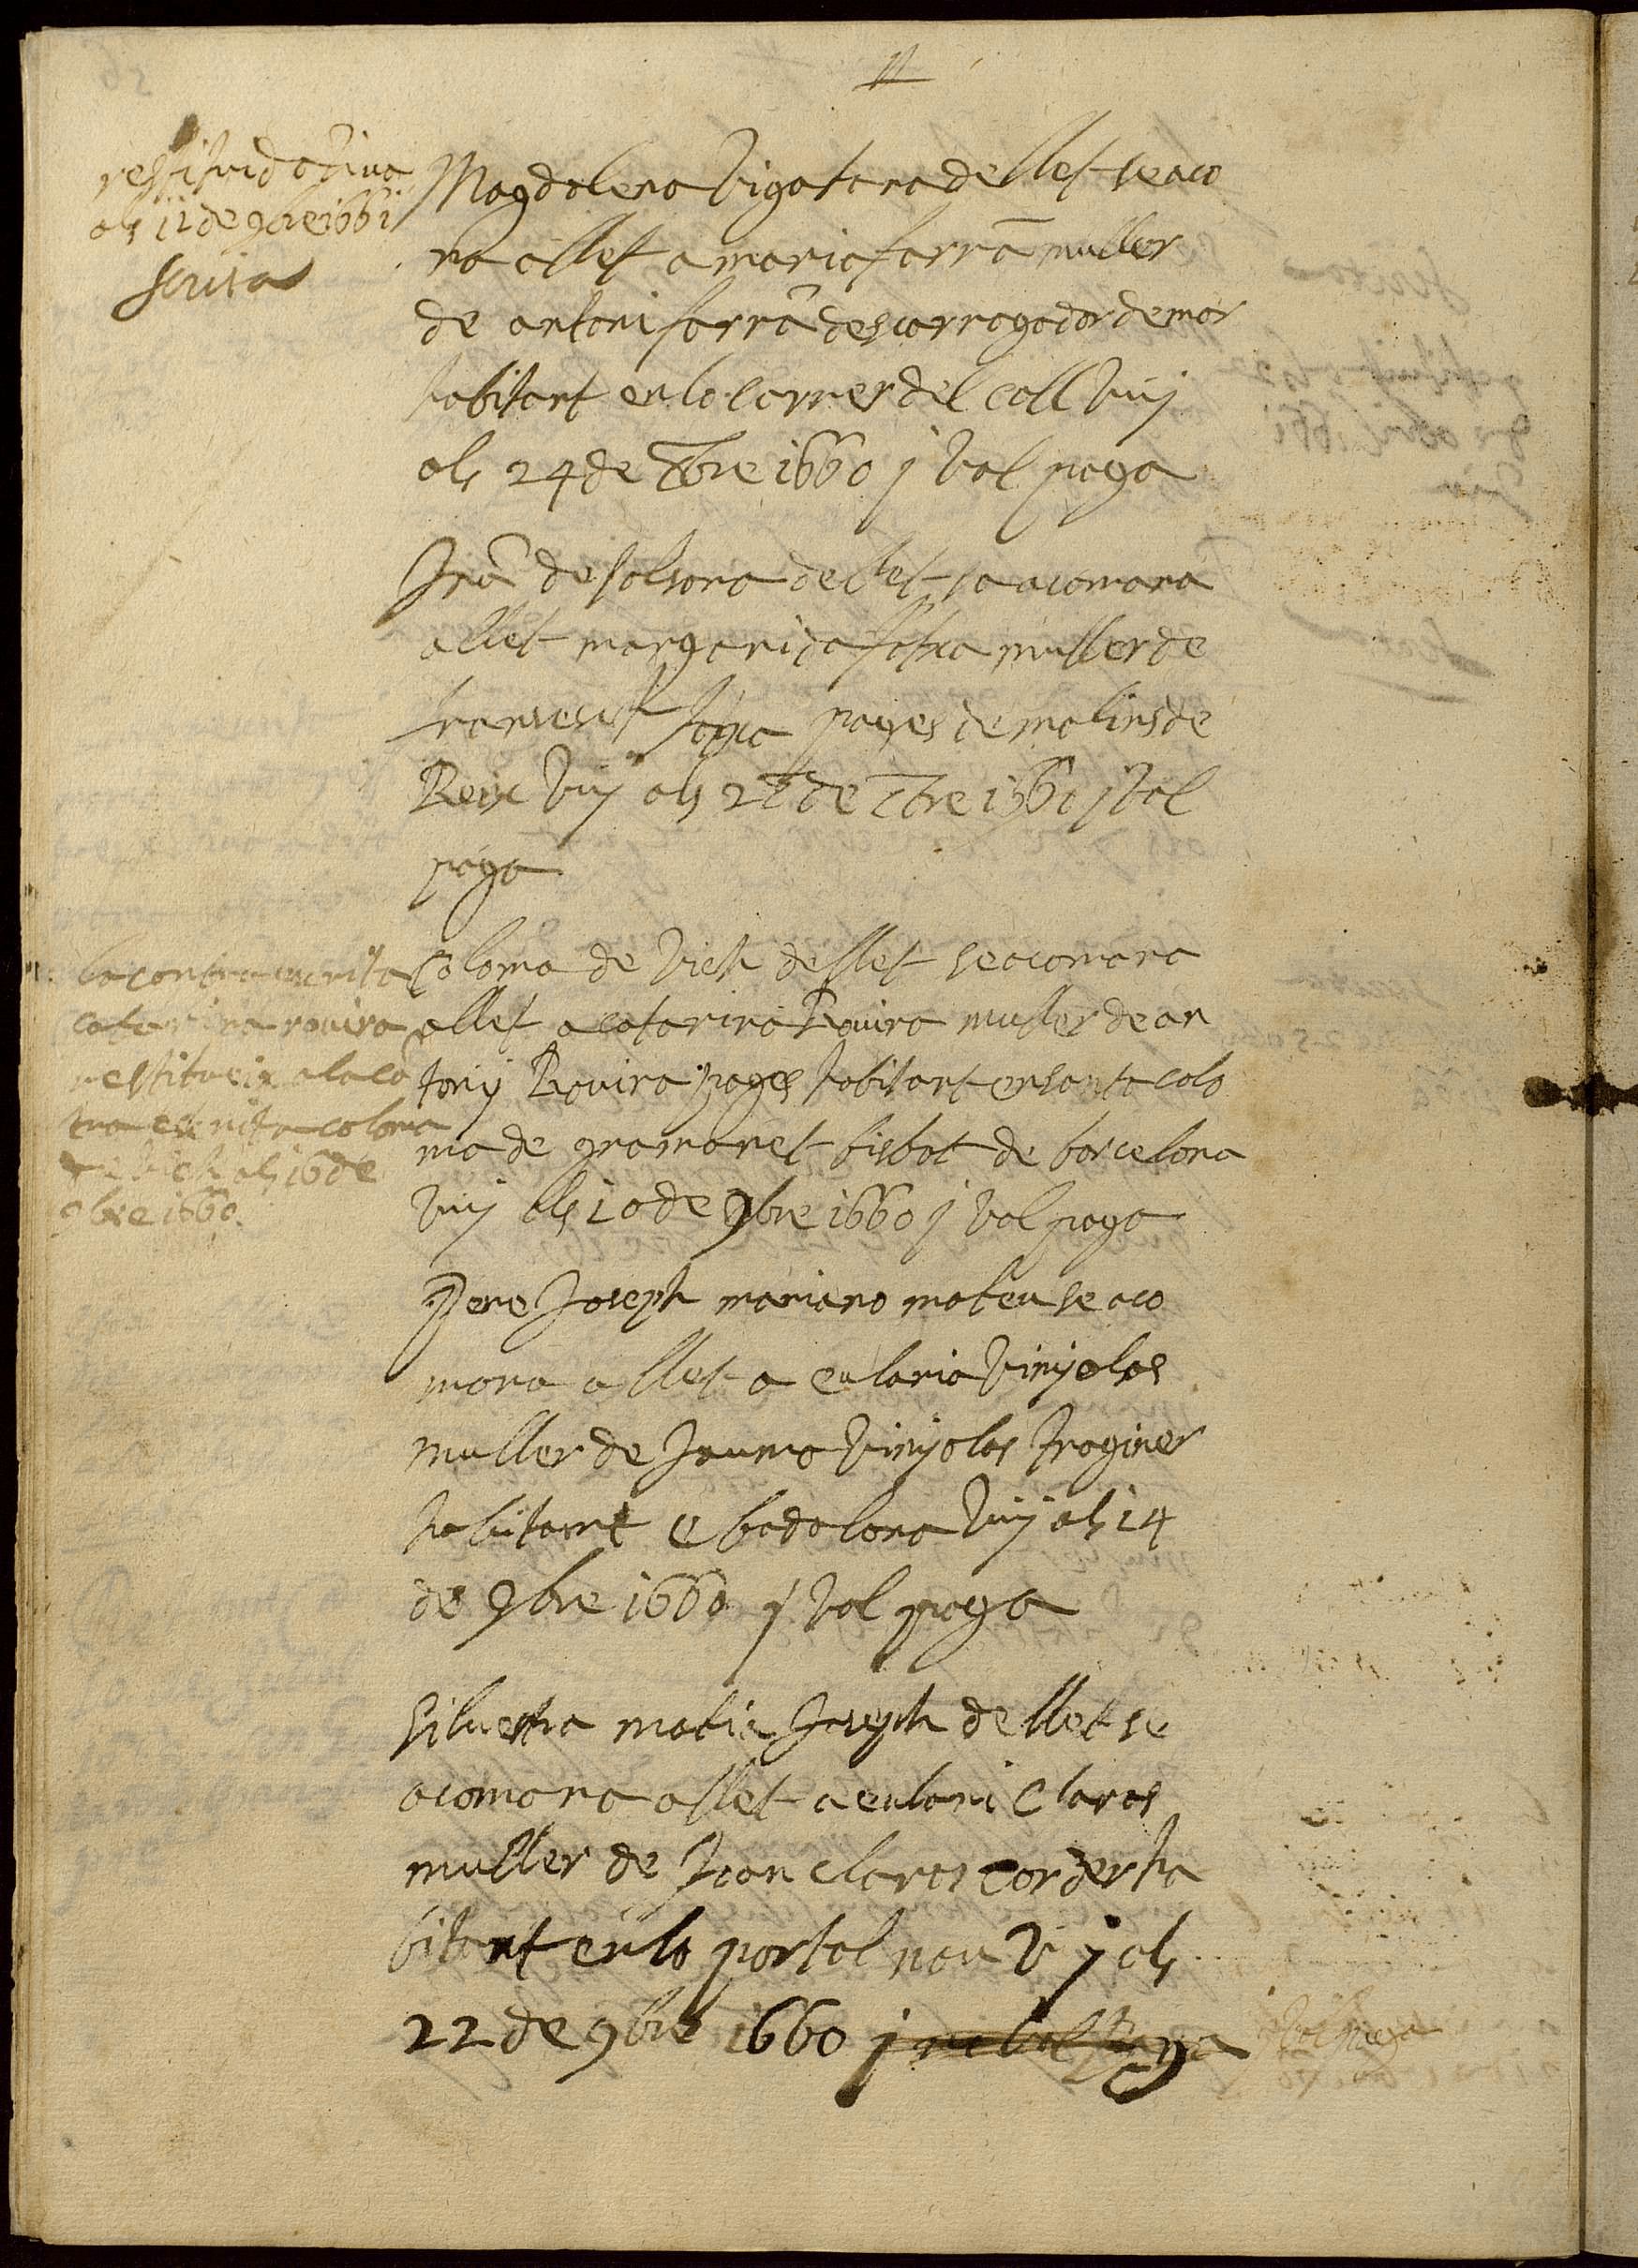 restituida viva
als 12 de 9bre 1661
scrita
Magdalena Vigatana de llet se aco
na a llet a maria farrã muller
de antoni farrã descarragador de mar
habitant en lo carrer del call vuy
als 24 de 8bre 1660 j vol paga
de solsona de llet sa acomana
a llet margarida muller de
pages de molins de
Reix vuy als de 8bre 1660 j vol
paga
la contra escrita
caterina rouira
restitueix a la cõ
tra escrita coloma
de vich als 16 de
9bre 1660
Coloma de Vich de llet se acomana
a llet a catarina Rouira muller de an
tony Rouira pages habitant en santa colo
ma de gramanet bisbat de barcelona
vuy als 10 de 9bre 1660 j vol paga
Pere Joseph mariano mateu se aco
mana a llet a eularia Vinyolas
muller de Jauma Vinyolas traginer
habitant e badalona vuy als 14
de 9bre 1660 j vol paga
Siluestra matia Joseph de llet se
acomana a llet a eulari Claros
muller de Joan claros corder ha
bitant en lo portal nou v j als
22 de 9bre 1660 j no vol paga